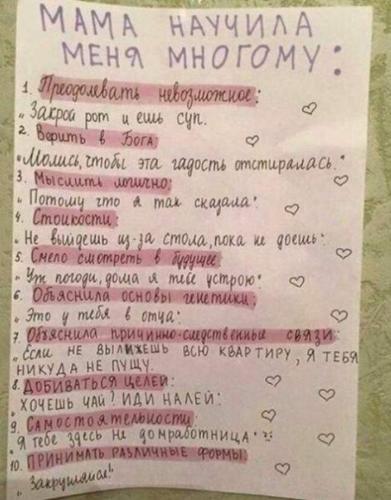 МАМА НАУЧИЛА
МЕНЯ МНОГОМУ:
1. Преодолевать невозможное:
„Закрой рот и ешь суп.
2. Верить в Бога:
„Молись, чтобы эта гадость отстиралась."
3. Мыслить логично:
„Потому что я так сказала".
4. Стойкости:
„Не выйдешь из-за стола, пока не доешь".
5. Смело смотреть в будущее:
„Уж погоди, дома я тебе устрою".
6. Объяснила основы генетики:
„Это у тебя в отца".
7. Объяснила причинно-следственные связи:
„ЕСЛИ НЕ ВЫЛИЖЕШЬ ВСЮ КВАРТИРУ, Я ТЕБЯ
НИКУДА НЕ ПУЩУ.
8. ДОБИВАТЬСЯ ЦЕЛЕЙ:
ХОЧЕШЬ ЧАЙ? ИДИ НАЛЕЙ.
9. САМОСТОЯТЕЛЬНОСТИ:
„Я тебе здесь не домработница".
10. ПРИНИМАТЬ РАЗЛИЧНЫЕ ФОРМЫ:
„Закругляйся!"